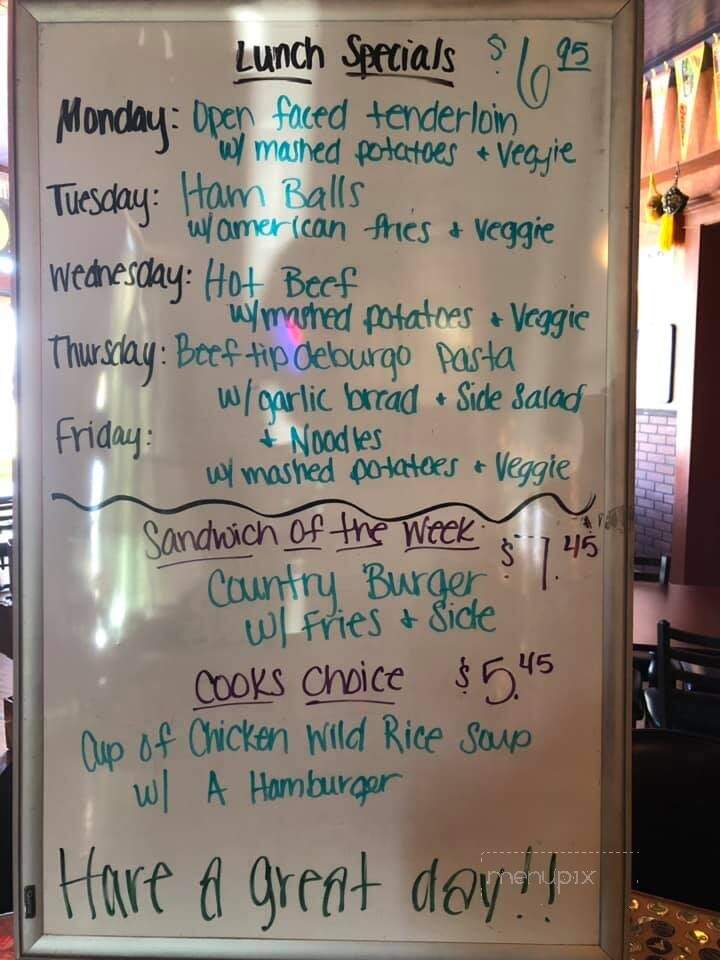 Lunch Specials $6.95
Monday: Open faced tenderloin
w/ mashed potatoes + Veggie
Tuesday: Ham Balls
w/ american fries + veggie
Wednesday: Hot Beef
w/ mashed potatoes + Veggie
Thursday: Beef tip deburgo Pasta
w/ garlic bread + Side Salad
Friday: + Noodles
w/ mashed potatoes + Veggie
Sandwich of the Week $7.45
Country Burger
w/ Fries + Side
Cooks Choice $5.45
Cup of Chicken Wild Rice Soup
w/ A Hamburger
Have A great day!!
menupix